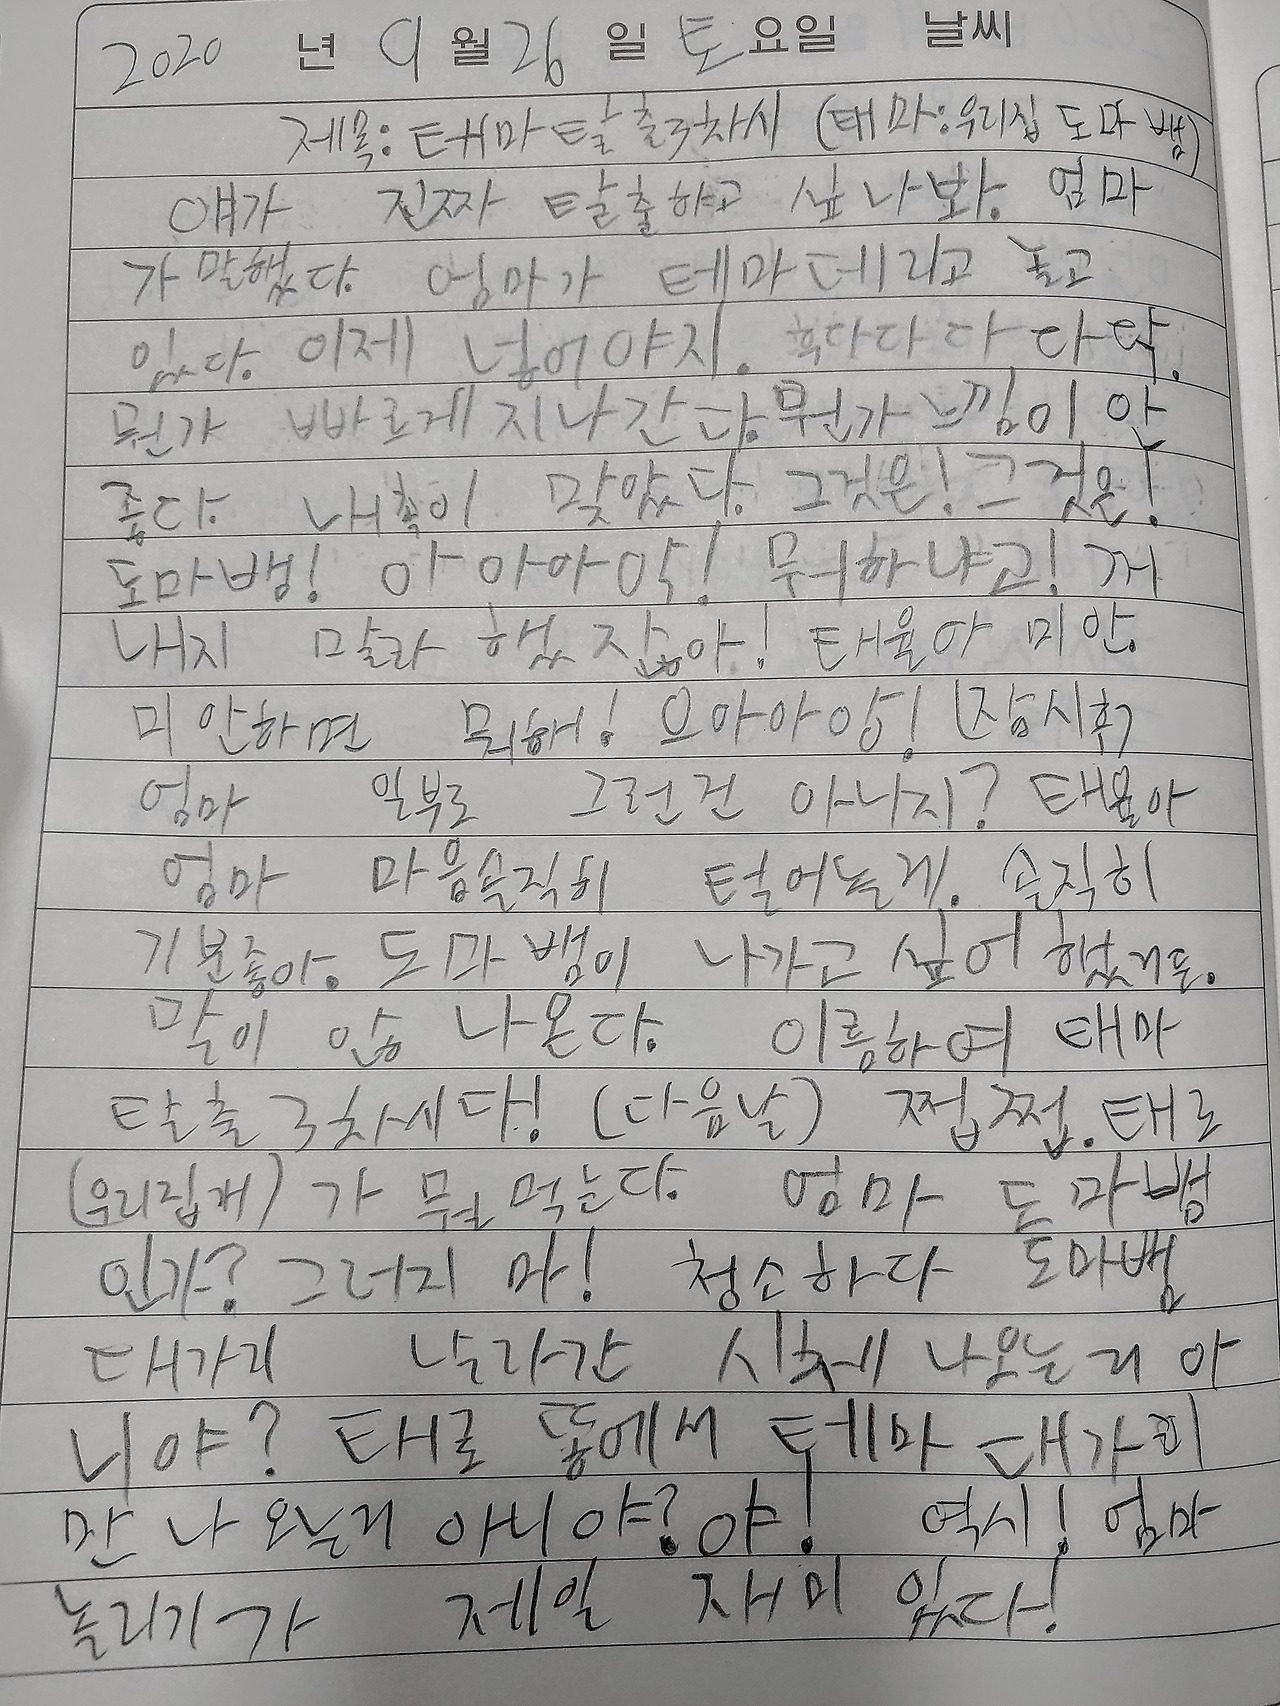 2020 년 9 월 26 일 토 요일 날씨
제목: 태마탈출 3차시 (태마:우리집 도마뱀)
얘가 진짜 탈출하고 싶나봐. 엄마
가 말했다. 엄마가 테마 데리고 놀고
있다. 이제 넣어야지. 후다다다다닥.
뭔가 빠르게 지나간다. 뭔가 느낌이 안
좋다. 내 촉이 맞았다. 그것은! 그것은!
도마뱀! 아아아악! 뭐하냐고! 꺼
내지 말라 했잖아! 태율아 미안.
미안하면 뭐해! 으아아앙! (잠시후)
엄마 일부로 그런건 아니지? 태율아
엄마 마음솔직히 털어놀게. 솔직히
기분좋아. 도마뱀이 나가고 싶어 했거든.
말이 않 나온다. 이름하여 태마
탈출 3차시다! (다음날) 쩝쩝. 태로
(우리집개)가 뭘 먹는다. 엄마 도마뱀
인가? 그러지 마! 청소하다 도마뱀
대가리 날라간 시체 나오는거 아
니야? 태로 똥에서 테마 대가리
만 나오는거 아니야? 야! 역시! 엄마
놀리기가 제일 재미있다!